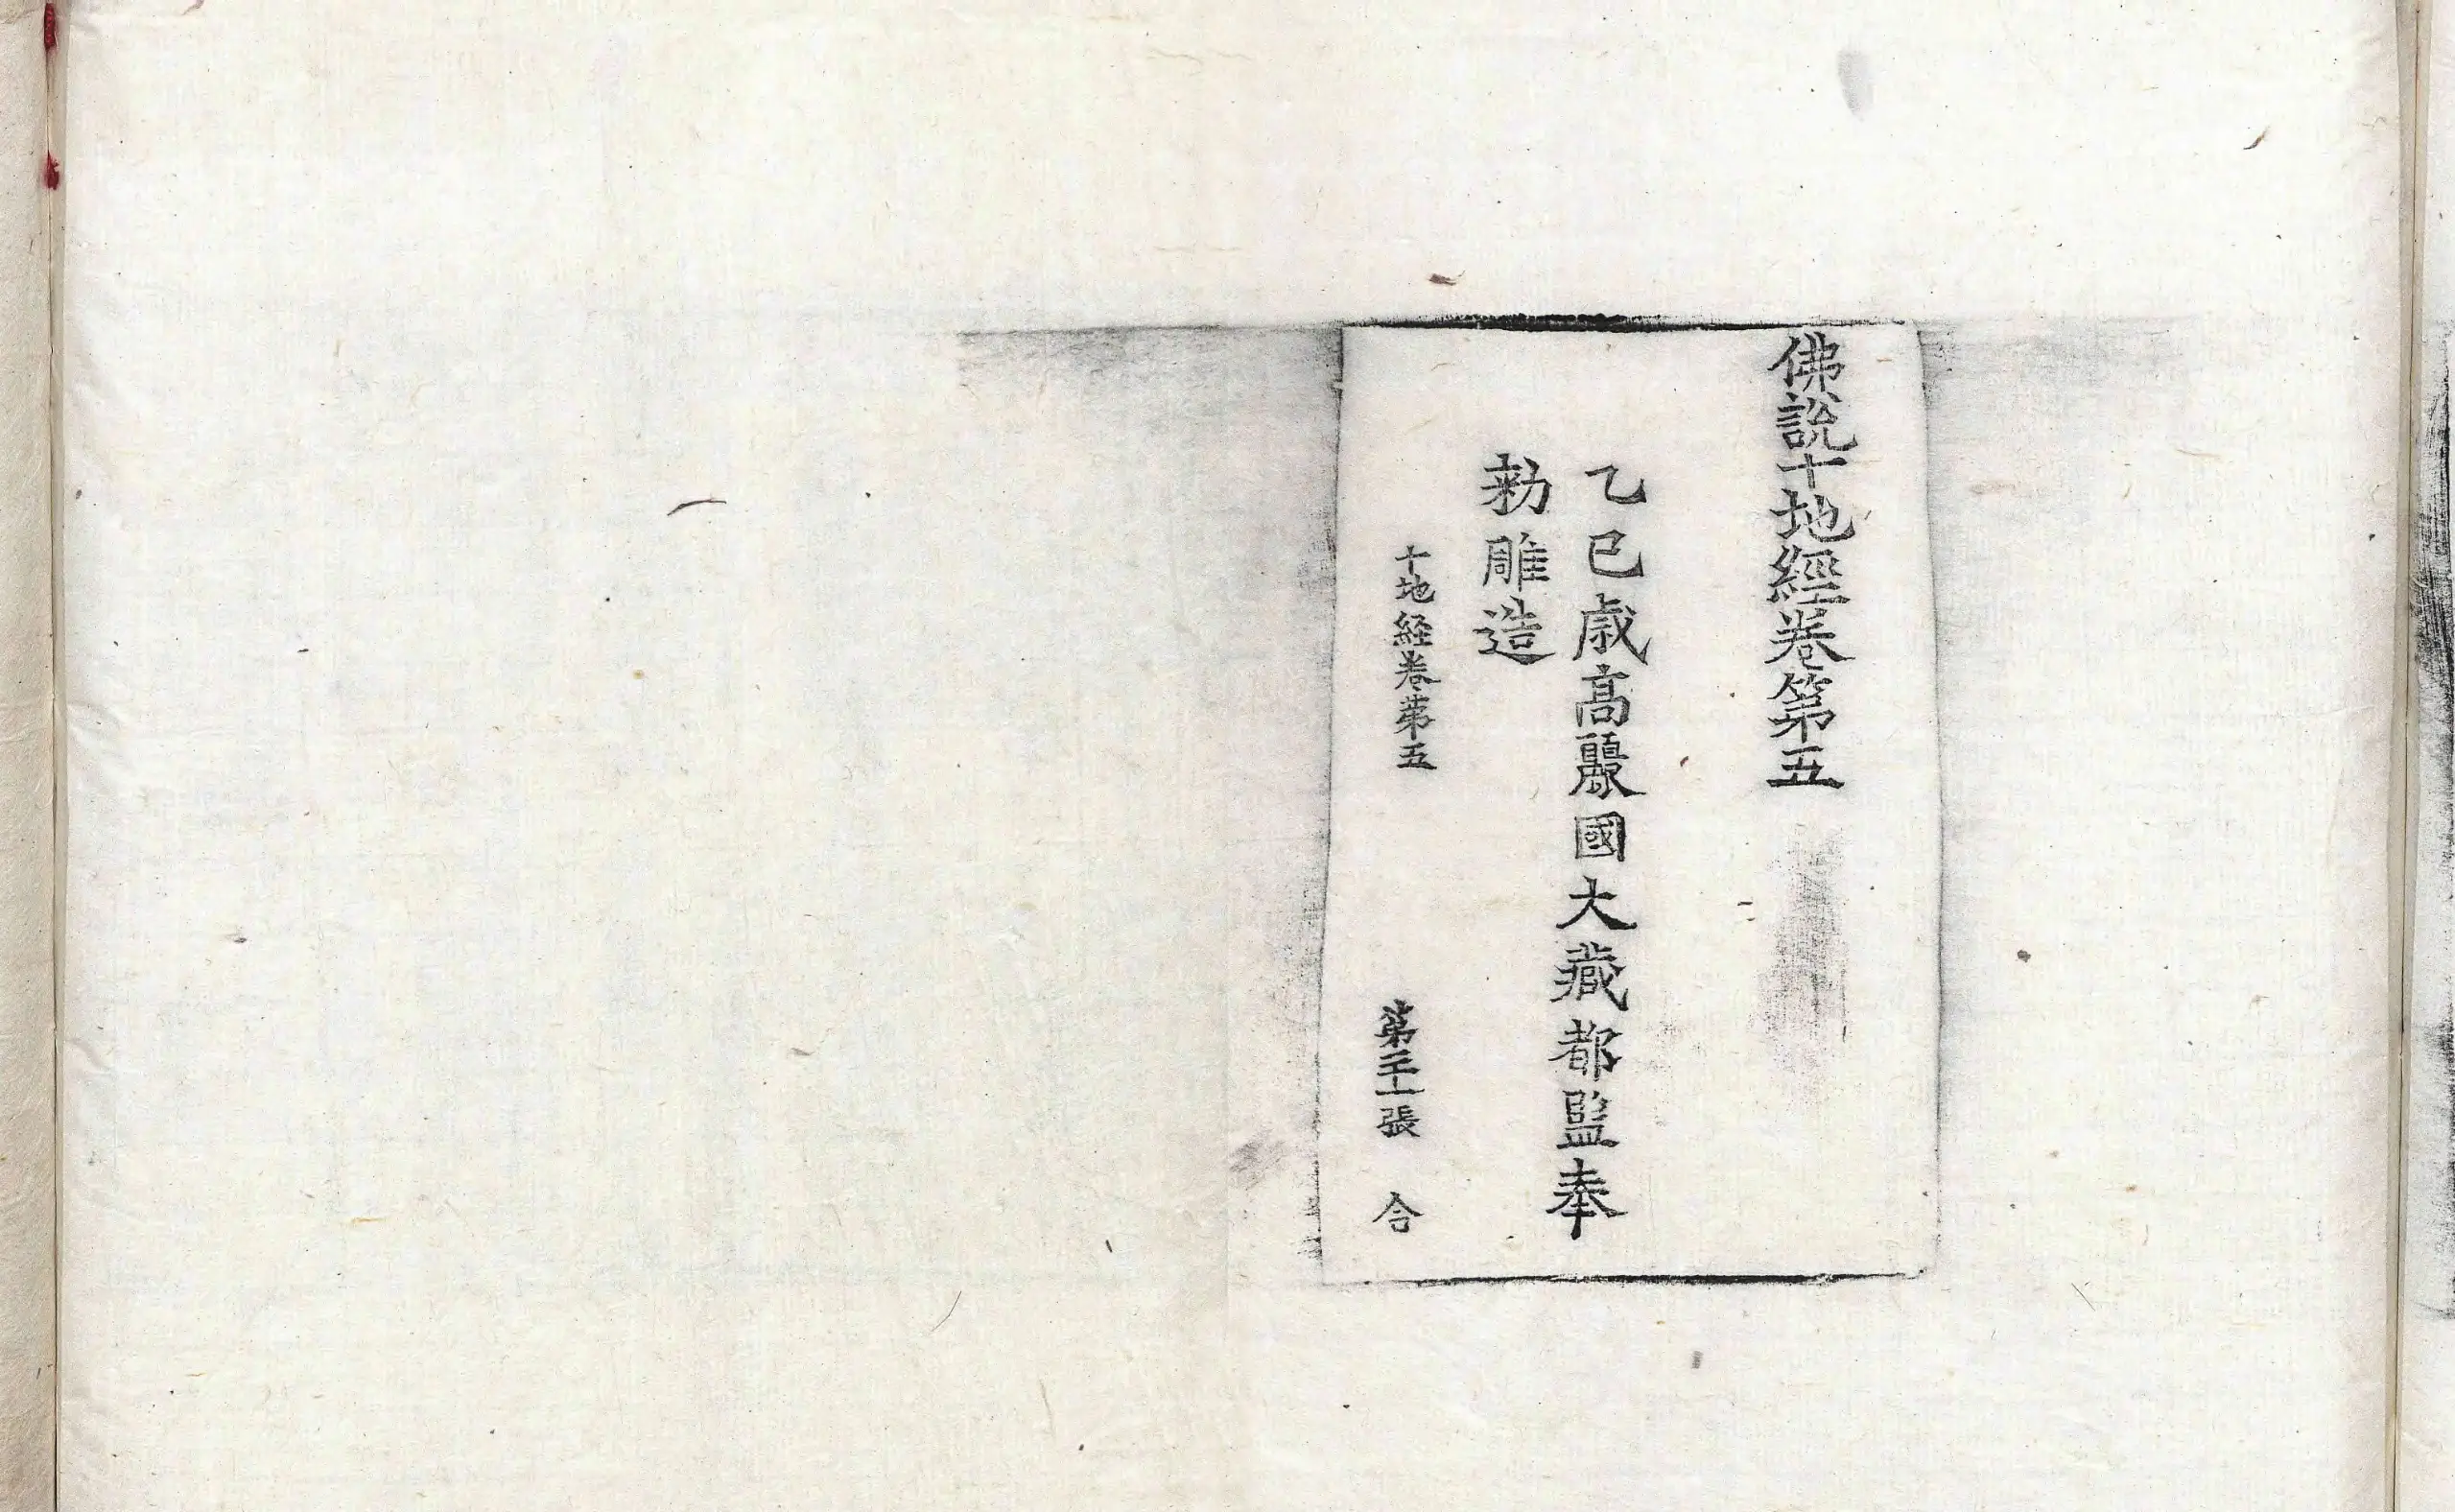 佛說十地經卷第五
乙巳歲高麗國大藏都監奉
勅雕造
十地經卷第五
第 張 合